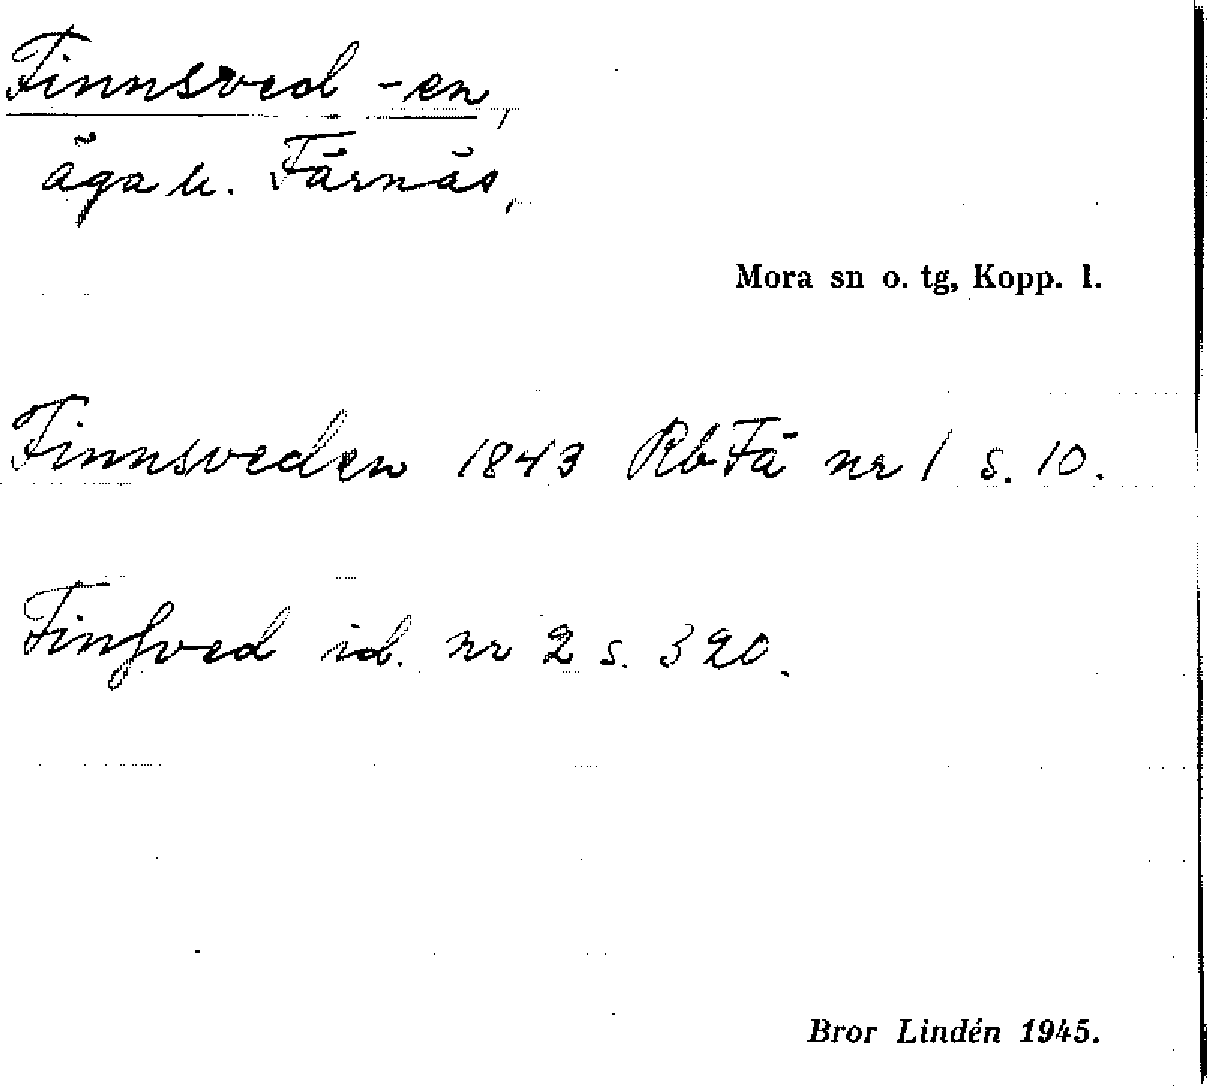 Finnsved -en,
äga u. Färnäs,
Mora sn o. tg, Kopp. l.
Finnsveden 1843 RbFä nr 1 s. 10.
Finſved id. nr 2 s. 320.
Bror Lindén 1945.